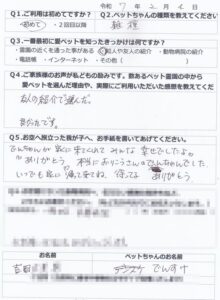 令和 7 年 2 月 4 日
Q1.ご利用は初めてですか?
・初めて ・2回目以降
Q2.ペットちゃんの種類を教えてください
Q3.一番最初に愛ペットを知ったきっかけは何ですか?
・霊園の近くを通った事がある ・知人や友人の紹介 ・動物病院の紹介
・電話帳 ・インターネット ・その他( )
Q4.ご家族様のお声が私どもの励みです。数あるペット霊園の中から
愛ペットを選んだ理由や、実際にご利用いただいた感想を教えてくだ
友人の紹介で選んだ。
Q5.お空へ旅立った我が子へ、お手紙を書いてあげてください。
でんちゃんが 家に来てくれて みんな 幸せでしたよ
ありがとう 本当に おりこうさんの でんちゃんでした
いつでも 家に 帰って来てね 待ってる ありがとう
お名前
ペットちゃんのお名前
吉田
でんすけ